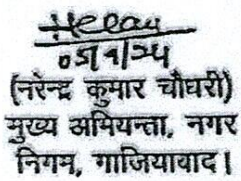 05/9/24
(नरेन्द्र कुमार चौधरी)
मुख्य अभियन्ता, नगर
निगम, गाजियाबाद।